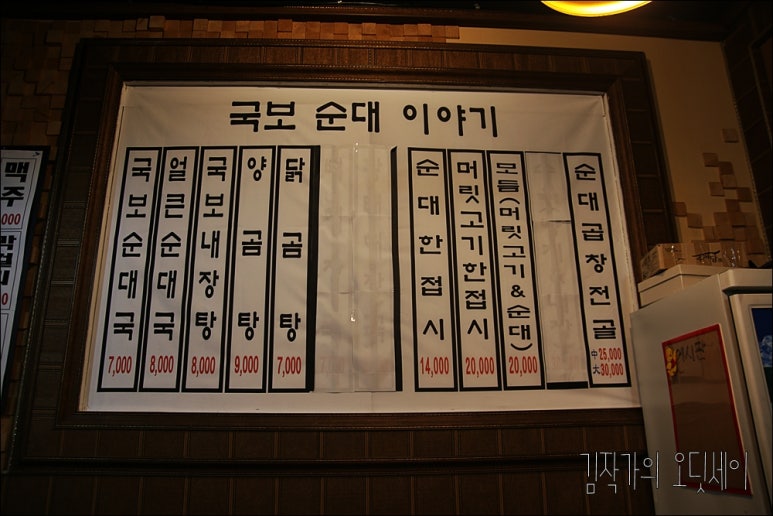 국보 순대 이야기
국보순대국 7,000
얼큰순대국 8,000
국보내장탕 8,000
양곰탕 9,000
닭곰탕 7,000
순대한접시 14,000
머릿고기한접시 20,000
모듬(머릿고기&순대) 20,000
순대곱창전골 中 25,000
大 30,000
맥주
,000
김작가의 오딧세이